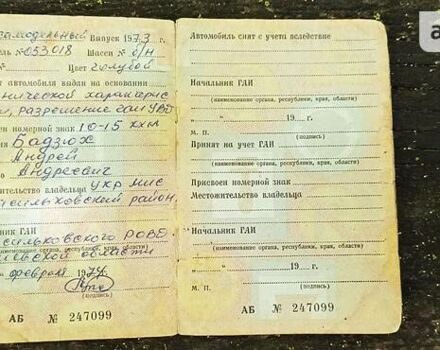 самодельный Выпуск 1973 г.
ль № 053.018 Шасси № б/н
№ Цвет голубой
т автомобиля выдан на основании
нической характерис
и, разрешение ГАИ УВД
ен номерной знак 10-15 ххм
Бадзюх
Андрей
Андреевич
тельство владельца укр мис
сильковский район,
сильковского РОВД
иевской области
(наименование органа, республики, края, области)
февраля 1974 г.
(подпись)
АБ № 247099
Автомобиль снят с учета вследствие
Начальник ГАИ
(наименование органа, республики, края, области)
19 г.
М. П. (подпись)
Принят на учет ГАИ
(наименование органа, республики, края, области)
Присвоен номерной знак
Местожительство владельца
Начальник ГАИ
(наименование органа, республики, края, области)
19 г.
М. П. (подпись)
АБ № 247099
a